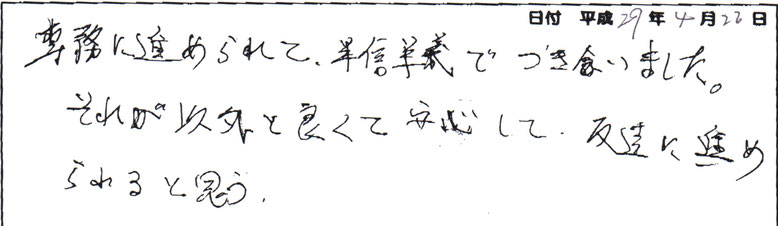 日付 平成29年4月22日
専務に進められて、半信半義でつき合いました。
それが以外と良くて安心して、友達に進め
られると思う。